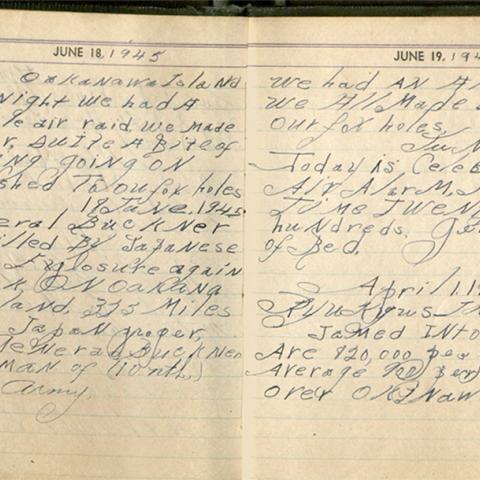 JUNE 18, 1945
OaKaNawa IslaNd
Night We had A
le air raid. We Made
r, Quite A Bite of
ing going on
shed To our fox holes
18 June. 1945
eral Buckner
illed By Japanese
Explosure again
k ON OaKaNa
land. 375 Miles
Japan proper.
General Buckner
MaN of (10 nth.)
Army.
JUNE 19, 194
We had AN A
We All Made
Our fox holes.
Today is Celeb
Air AlarM.
Time Twen
huNdreds.
of Bed.
April 1.1
Ryukyus
JaMed INto
Are 820,000
Average 900 per
over OKINaw